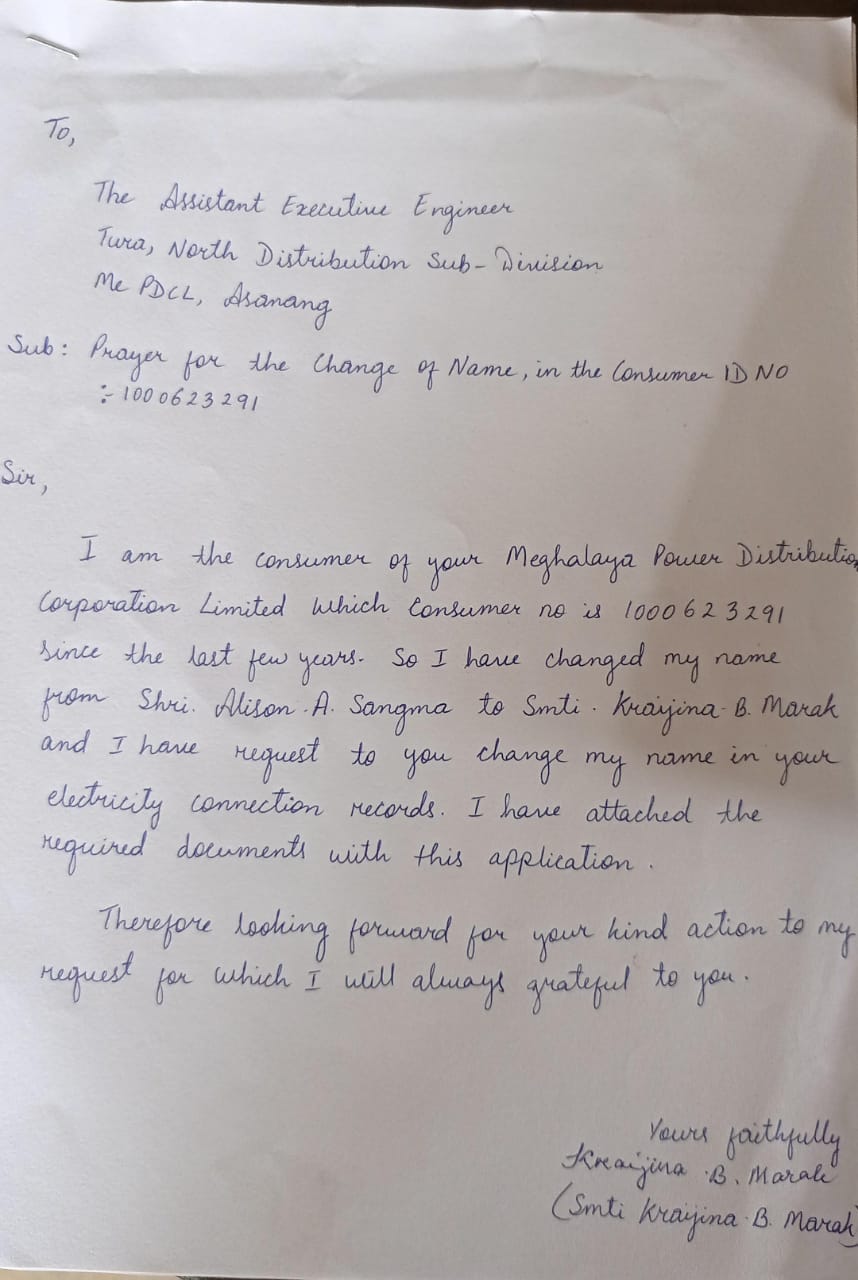 To,
The Assistant Executive Engineer
Tura, North Distribution Sub-Division
Me PDCL, Asanang
Sub: Prayer for the Change of Name, in the Consumer ID NO
:- 1000623291
Sir,
I am the consumer of your Meghalaya Power Distribution
Corporation Limited which Consumer no is 1000623291
since the last few years. So I have changed my name
from Shri. Alison A. Sangma to Smti. Kraijina B. Marak
and I have request to you change my name in your
electricity connection records. I have attached the
required documents with this application.
Therefore looking forward for your kind action to my
request for which I will always grateful to you.
Yours faithfully
Kraijina B. Marak
(Smti Kraijina B. Marak)